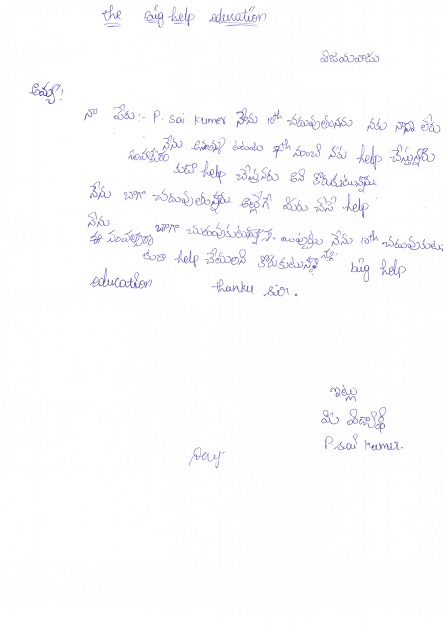 the Big help education
విజయవాడ
అమ్మ!
నా పేరు:- P. sai kumer నేను 10th చదువుతున్నను నకు నాన్న లేరు
నేను 7th నుంచి నకు help చేస్తున్నారు
help చేస్తారు అని కోరుకుటున్నాను
నేను బాగా చదువుతున్నాను అల్లేగే మీరు చేసే help
నేను
ఈ సంవత్సారం బాగా చదువుకుటున్నానే. ఇప్పుడు నేను 10th చదువుకుటు
కుడా help చేయలని కోరుకుటున్నానే Big help
education thanku sir.
ఇట్లు
మీ విద్యార్థి
P. sai kumer.